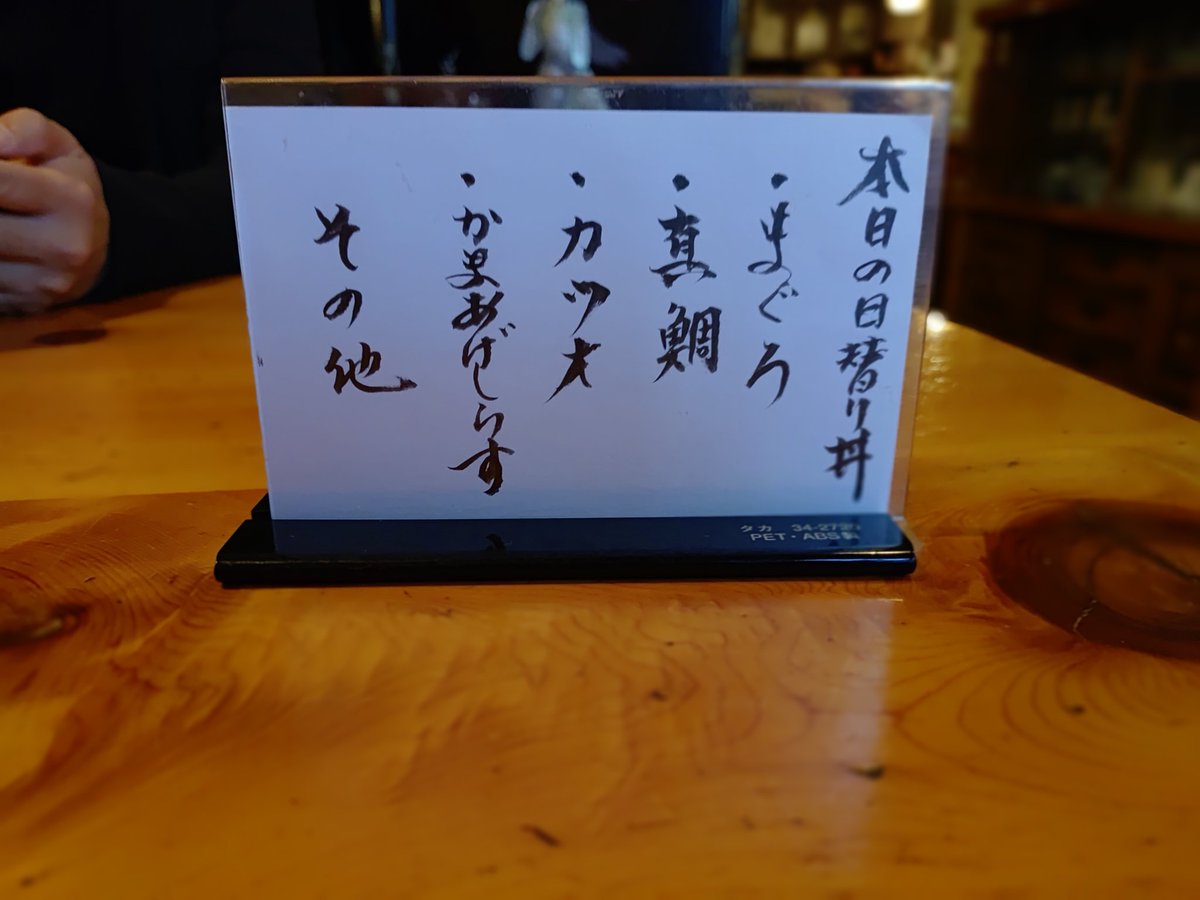 本日の日替り丼
・まぐろ
・真鯛
・カツオ
・かまあげしらす
その他
タカ 34-272
PET・ABS製